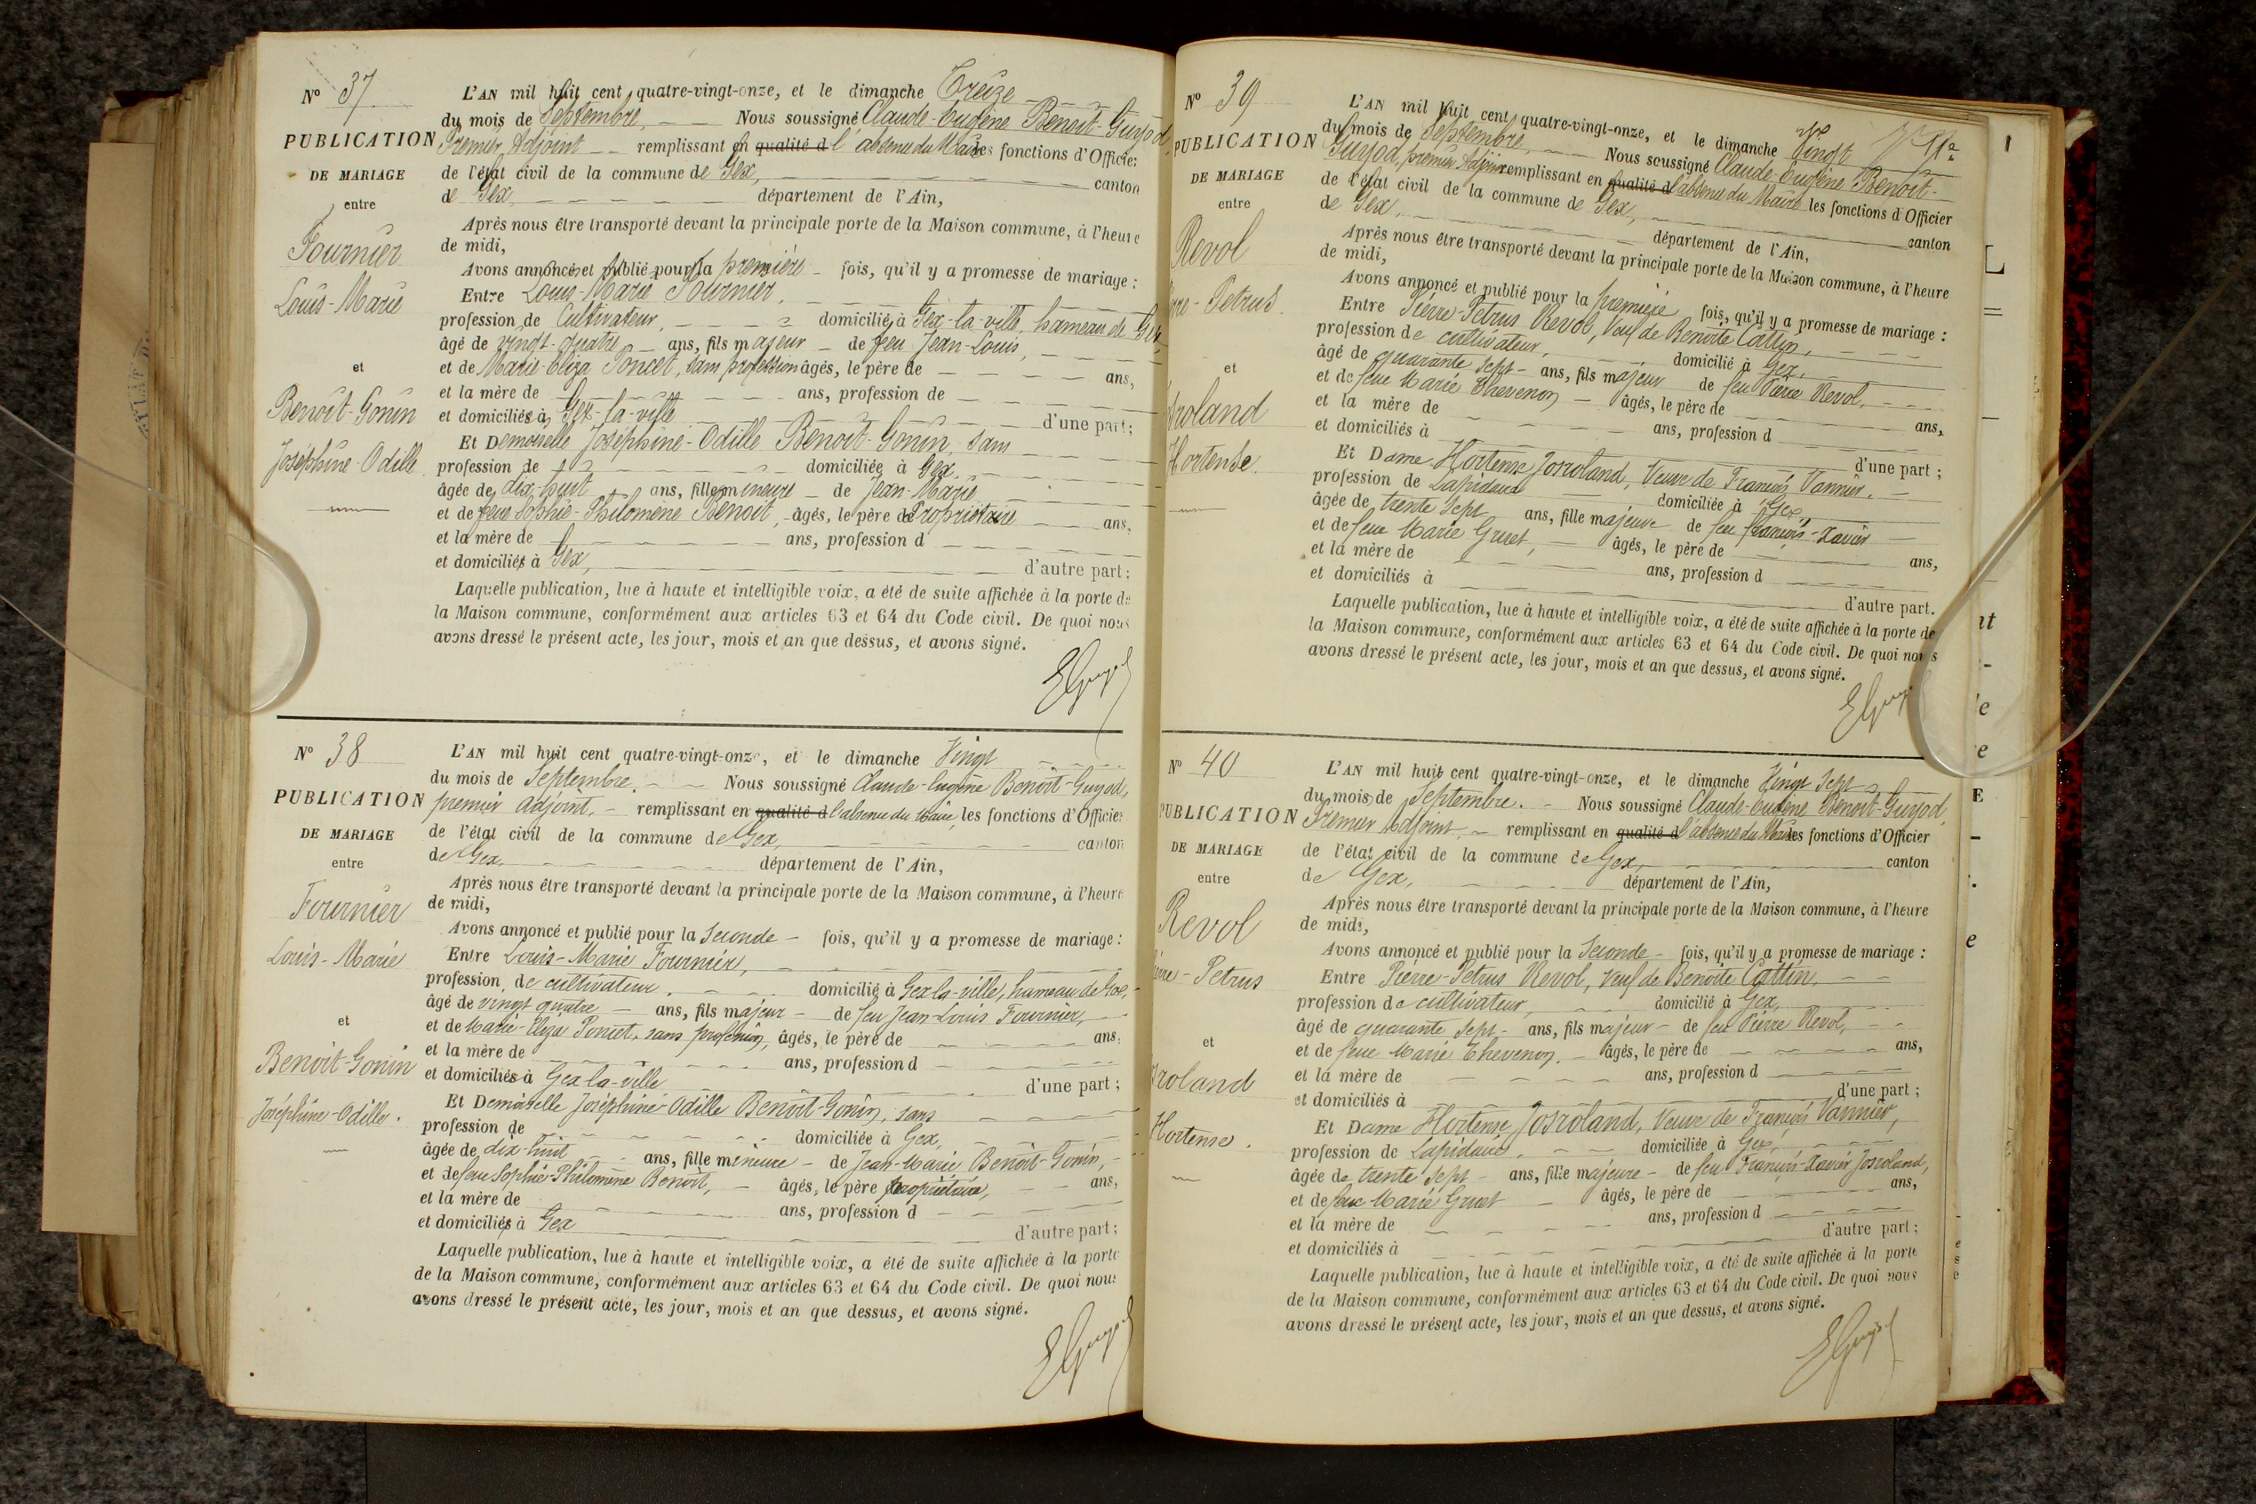 N° 37
PUBLICATION
DE MARIAGE
entre
Fournier
Louis-Marie
et
Benoit-Gonin
Joséphine-Odille
L'AN mil huit cent quatre-vingt-onze, et le dimanche Treize
du mois de Septembre, Nous soussigné Claude-Eugène Benoit-Guyod,
Premier Adjoint remplissant en qualité d l'absence du Maire les fonctions d'Officier
de l'état civil de la commune de Gex, canton
de Gex, département de l'Ain,
Après nous être transporté devant la principale porte de la Maison commune, à l'heure
de midi,
Avons annoncé et publié pour la première fois, qu'il y a promesse de mariage :
Entre Louis-Marie Fournier,
profession de Cultivateur, domicilié à Gex-la-ville, hameau de Gex,
âgé de vingt-quatre ans, fils majeur de feu Jean-Louis,
et de Marie-Eliza Poncet, sans profession âgés, le père de ans,
et la mère de ans, profession de
et domiciliés à Gex-la-ville d'une part ;
Et Demoiselle Joséphine-Odille Benoit-Gonin, sans
profession de domiciliée à Gex,
âgée de dix-huit ans, fille mineure de Jean-Marie
et de feue Sophie-Philomène Benoit, âgés, le père de Propriétaire ans,
et la mère de ans, profession d
et domiciliés à Gex, d'autre part ;
Laquelle publication, lue à haute et intelligible voix, a été de suite affichée à la porte de
la Maison commune, conformément aux articles 63 et 64 du Code civil. De quoi nous
avons dressé le présent acte, les jour, mois et an que dessus, et avons signé.
EGuyod
N° 38
PUBLICATION
DE MARIAGE
entre
Fournier
Louis-Marie
et
Benoit-Gonin
Joséphine-Odille.
L'AN mil huit cent quatre-vingt-onze, et le dimanche Vingt
du mois de Septembre. Nous soussigné Claude-Eugène Benoit-Guyod,
premier adjoint. remplissant en qualité d l'absence du Maire, les fonctions d'Officier
de l'état civil de la commune de Gex, canton
de Gex, département de l'Ain,
Après nous être transporté devant la principale porte de la Maison commune, à l'heure
de midi,
Avons annoncé et publié pour la Seconde fois, qu'il y a promesse de mariage :
Entre Louis-Marie Fournier,
profession de cultivateur, domicilié à Gex-la-ville, hameau de Gex,
âgé de vingt quatre ans, fils majeur de feu Jean-Louis Fournier,
et de Marie-Eliza Poncet, sans profession, âgés, le père de ans,
et la mère de ans, profession d
et domiciliés à Gex-la-ville d'une part ;
Et Demoiselle Joséphine-Odille Benoit-Gonin, sans
profession de domiciliée à Gex,
âgée de dix-huit ans, fille mineure de Jean-Marie Benoit-Gonin,
et de feue Sophie-Philomène Benoit, âgés, le père propriétaire, ans,
et la mère de ans, profession d
et domiciliés à Gex d'autre part ;
Laquelle publication, lue à haute et intelligible voix, a été de suite affichée à la porte
de la Maison commune, conformément aux articles 63 et 64 du Code civil. De quoi nous
avons dressé le présent acte, les jour, mois et an que dessus, et avons signé.
EGuyod
N° 39
PUBLICATION
DE MARIAGE
entre
Revol
rre-Petrus.
et
sroland
Hortense
L'AN mil huit cent quatre-vingt-onze, et le dimanche Vingt
du mois de Septembre, Nous soussigné Claude-Eugène Benoit-
Guyod, premier Adjoint remplissant en qualité d l'absence du Maire les fonctions d'Officier
de l'état civil de la commune de Gex, canton
de Gex, département de l'Ain,
Après nous être transporté devant la principale porte de la Maison commune, à l'heure
de midi,
Avons annoncé et publié pour la première fois, qu'il y a promesse de mariage :
Entre Pierre-Petrus Revol, Veuf de Benoite Cattin,
profession de cultivateur, domicilié à Gex,
âgé de quarante sept ans, fils majeur de feu Pierre Revol,
et de feue Marie Thevenon âgés, le père de ans,
et la mère de ans, profession d
et domiciliés à d'une part ;
Et Dame Hortense Josroland, Veuve de François Vannier,
profession de Lapidaire domiciliée à Gex,
âgée de trente sept ans, fille majeure de feu François-Xavier
et de feue Marie Gruet, âgés, le père de ans,
et la mère de ans, profession d
et domiciliés à d'autre part.
Laquelle publication, lue à haute et intelligible voix, a été de suite affichée à la porte de
la Maison commune, conformément aux articles 63 et 64 du Code civil. De quoi nous
avons dressé le présent acte, les jour, mois et an que dessus, et avons signé.
EGuyod
N° 40
PUBLICATION
DE MARIAGE
entre
Revol
ierre-Petrus
et
sroland
Hortense.
L'AN mil huit cent quatre-vingt-onze, et le dimanche Vingt Sept
du mois de Septembre. Nous soussigné Claude-Eugène Benoit-Guyod,
Premier Adjoint remplissant en qualité d l'absence du Maire les fonctions d'Officier
de l'état civil de la commune de Gex, canton
de Gex, département de l'Ain,
Après nous être transporté devant la principale porte de la Maison commune, à l'heure
de midi,
Avons annoncé et publié pour la Seconde fois, qu'il y a promesse de mariage :
Entre Pierre-Petrus Revol, veuf de Benoite Cattin,
profession de cultivateur, domicilié à Gex,
âgé de quarante sept ans, fils majeur de feu Pierre Revol,
et de feue Marie Thevenon. âgés, le père de ans,
et la mère de ans, profession d
et domiciliés à d'une part ;
Et Dame Hortense Josroland, Veuve de François Vannier,
profession de Lapidaire, domiciliée à Gex,
âgée de trente sept ans, fille majeure de feu François-Xavier Josroland,
et de feue Marie Gruet âgés, le père de ans,
et la mère de ans, profession d
et domiciliés à d'autre part ;
Laquelle publication, lue à haute et intelligible voix, a été de suite affichée à la porte
de la Maison commune, conformément aux articles 63 et 64 du Code civil. De quoi nous
avons dressé le présent acte, les jour, mois et an que dessus, et avons signé.
EGuyod